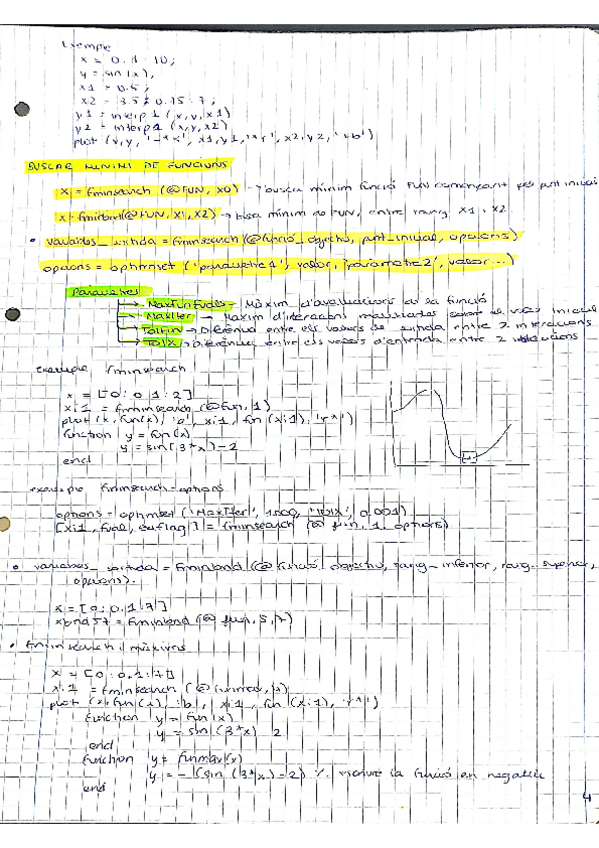 Exemple
x = 0:1:10;
y = sin(x);
x1 = 0.5;
x2 = 3.5:0.75:7;
y1 = interp1(x,y,x1)
y2 = interp1(x,y,x2)
plot(x,y, x1,y1,'*r', x2,y2,
BUSCAR MINIMS DE FUNCIONS
x = fminsearch (@FUN, x0) → busca mínim funció FUN començant pel punt inicial
x = fminbnd(@FUN, x1, x2) → busca mínim de FUN, entre rang x1 x2
• variables_sortida = fminsearch(@funció_objectiu, punt_inicial, opcions)
opcions = optimset ('paràmetre1', valor, 'paràmetre2', valor...)
Paràmetres
→ MaxFunEvals - Màxim d'avaluacions de la funció
→ MaxIter → Màxim d'iteracions inicial
→ TolFun → Diferència entre els valors de sortida entre 2 interacions
→ TolX → Diferència entre els valors d'entrada entre 2 iteracions
exemple fminsearch
x = [0:0.1:2]
xi1 = fminsearch (@fun, 1)
plot(x, fun(x), 'o', xi1, fun(xi1), 'r*')
function y = fun(x)
y = sin(3*x)-2
end
exemple fminsearch-options
options = optimset ('MaxIter', 1000, 'TolX', 0.001)
[xi1, fval, exitflag] = fminsearch (@fun, 1, options)
• variables_sortida = fminbnd (@funció_objectiu, rang_inferior, rang_superior,
opcions).
x = [0:0.1:7]
xbnd57 = fminbnd (@fun, 5, 7)
• fminsearch màxims
x = [0:0.1:7]
xi1 = fminsearch (@funmax, 1)
plot (x, fun(x), 'b', xi1, fun(xi1), 'r*')
function y = fun(x)
y = sin(3*x)-2
end
function y = funmax(x)
y = -(sin(3*x)-2) % la funció en negatiu
end
4